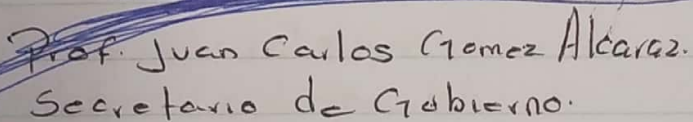 Prof. Juan Carlos Gomez Alcaraz.
Secretario de Gobierno.